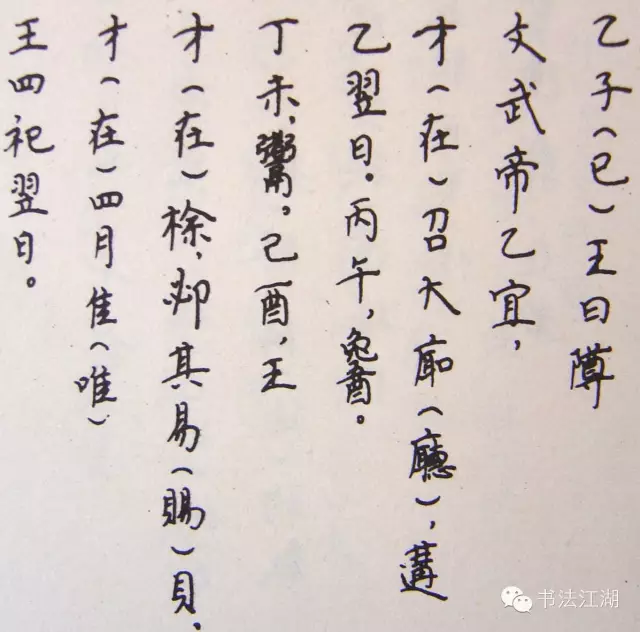 乙子（巳）王曰
文武帝乙宜，
才（在）召大（廳），遘
乙翌日。丙午，。
丁未，。己酉，王
才（在）梌，邲其易（賜）貝，
才（在）四月隹（唯）
王四祀翌日。
书法江湖